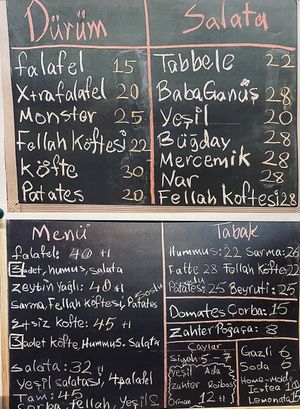 Dürüm
falafel 15
X+rafalafel 20
Monster 25
Fellah Köftesi 22
Köfte 30
Patates 20
Salata
Tabbele 22
BabaGanuş 28
Yeşil 20
Buğday 28
Mercemik 28
Nar 28
Fellah Köftesi 28
Menü
falafel: 40 tl
3 adet, humus, salata
Zeytin Yağlı: 40 tl
Sarma, Fellah köftesi, Patates
Soslu
Etsiz köfte: 45 tl
3 adet köfte, Hummus, Salata
Salata: 32 tl
Yeşil salatası, 4 falafel
Tam: 45
Çorba, fellah, Yeşil S
Tabak
Hummus: 22 Sarma: 26
Fatte 28 Fellah Köfte 22
Soslu
Patates: 25 Beyruti: 25
Domates Çorba: 15
Zahter Poğaça: 8
Çaylar
Siyah 5-7
Yeşil Ada
Zahter
Orman 12 tl
Gazli 6
Soda 6
Home-made
Icetea
Lemonata